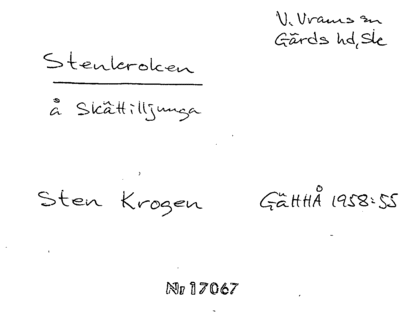 V. Vrams sn
Gärds hd, Sk
Stenkroken
å Skättilljunga
Sten Krogen GäHHÅ 1958:55
Nr 17067